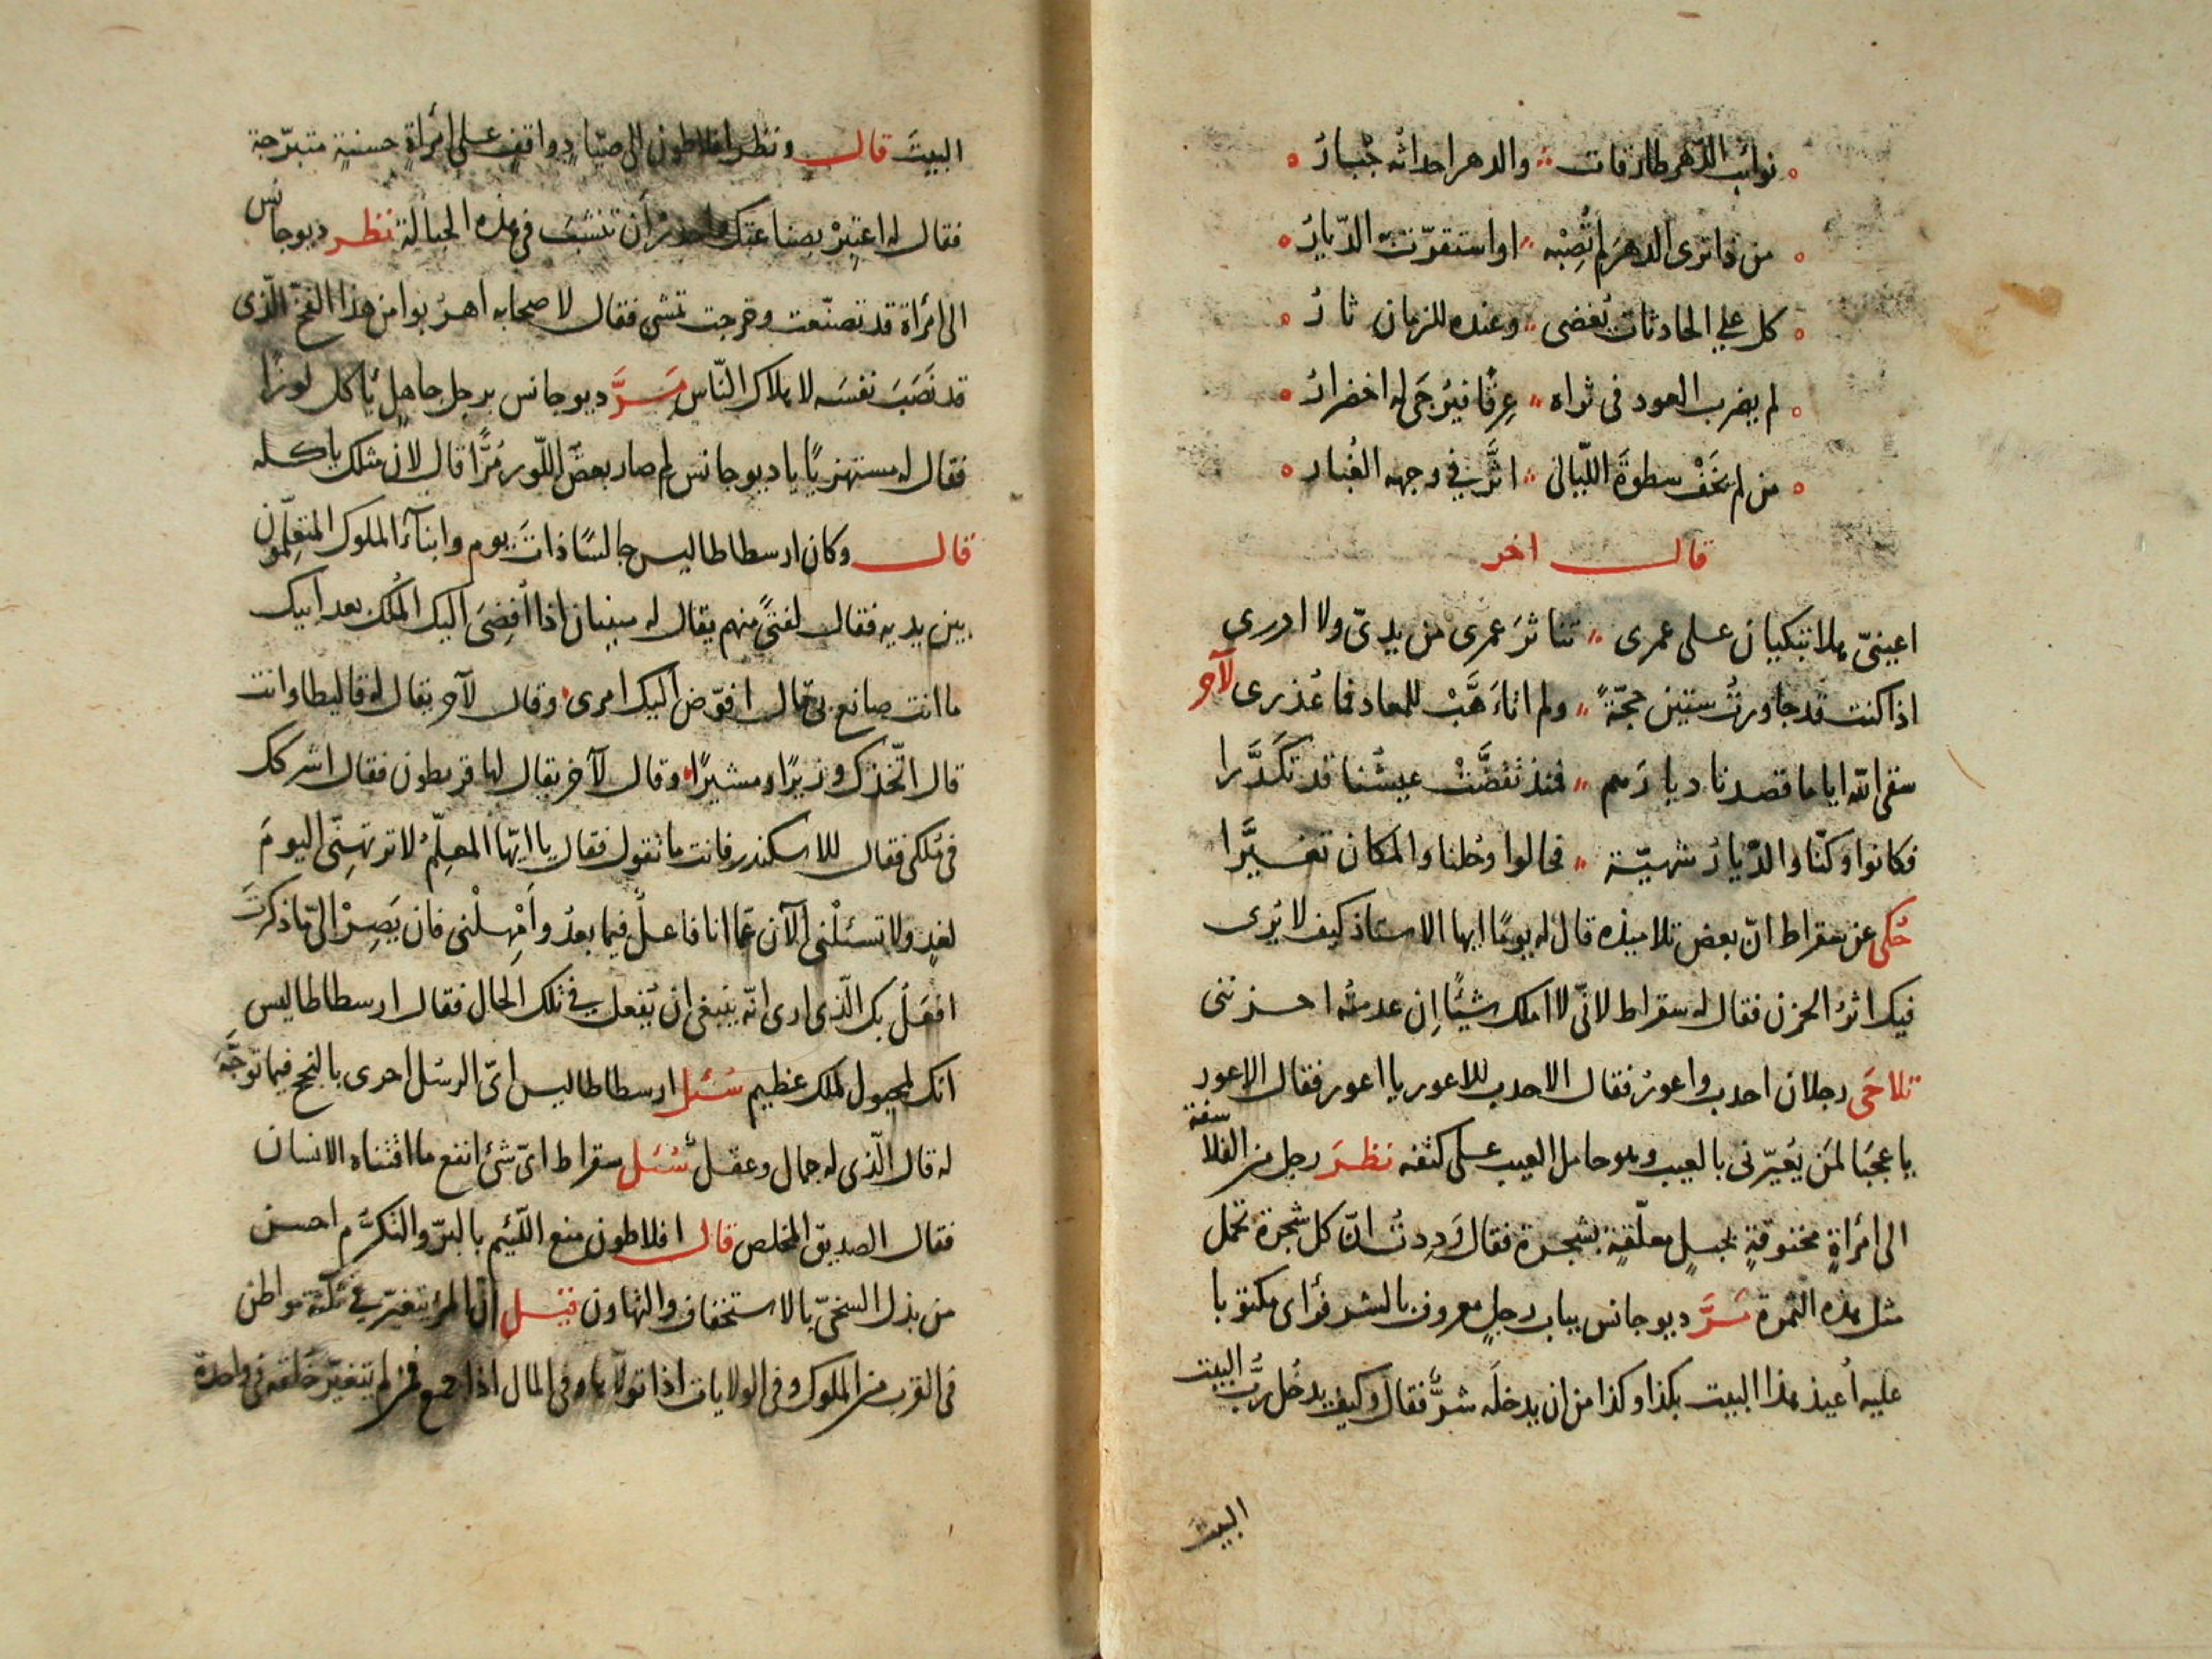 نوائب الدهر طارقات والدهر احداثه جبار
من ذا ترى الدهر لم تصبه او استقرت الديار
كل على الحادثات يغضى وعنده للزمان ثار
لم يضرب العود فى ثراه عرقا فيرجى له اخضرار
من لم يخف سطوة الليالى اثر في وجهه الغبار
قال اخر
اعينىّ هلا تبكيان على عمرى تناثر عمرى من يدىّ ولا ادرى
اذا كنت قد جاوزت ستين حجّةً ولم اتاهّب للمعاد فما عُذرى لآخر
سقى الله اياما قصدنا ديارهم فمنذ تقضّت عيشنا قد تكدّرا
فكانوا وكنّا والدّيار شهيّة فحالوا وحلنا والمكان تغيّرا
حُكى عن سقراط انّ بعض تلاميذه قال له يومًا ايها الاستاذ كيف لا يُرى
فيك اثر الحزن فقال له سقراط لانّى لا املك شيئًا اِن عدمتُه احزننى
تلاحَى رجلان احدب واعور فقال الاحدب للاعور يا اعور فقال الاعور
يا عجبًا لمَن يُعيّرنى بالعيب وهو حامل العيب على كتفه نظرَ رجل من الفلاسفة
الى امرأةٍ مخنوقةٍ بحبلٍ معلّقةٍ بشجرة فقال وَدِدتُ انّ كل شجرة تحمل
مثل هذه الثمرة مَرَّ ديوجانس بباب رجلٍ معروف بالشر فرأى مكتوبا
عليه اُعيذ هذا البيت بكذا وكذا من ان يدخلَه شرٌّ فقال وكيف يدخُل ربُّ البيت
البيتَ
البيتَ قال ونظر افلاطون الى صيّادٍ واقفٍ على امرأةٍ حسنةٍ متبرّجة
فقال له اعتبِرْ بصناعتك واحذر أن تنشَبَ في هذه الحبالة نظر ديوجانس
الى امرأة قد تصنّعت وخرجت تمشى فقال لاصحابه اهربوا من هذا الفخّ الّذى
قد نَصَبَ نفسَه لاهلاك النّاس مَرَّ ديوجانس برجل جاهلٍ يأكل لوزًا
فقال له مستهزيًا يا ديوجانس لم صار بعضُ اللّوز مُرًّا قال لانّ مثلك ياكله
قال وكان ارسطاطاليس جالسًا ذاتَ يوم وابنآءُ الملوك المتعلّمون
بين يديه فقال لفتىً منهم يقال له اذا اُفضِىَ اليك المُلك بعد ابيك
ما انت صانع بى قال افوّض اليك امرى وقال لآخر يقال له وانت
قال اتّخذك وزيرًا ومشيرًا وقال لآخر يقال لها فقال اشركك
فى مُلكى فقال للاسكندر فانت ما تقول فقال يا ايّها المعلّمُ لا ترتهِنّى اليومَ
لغدٍ ولا تسئلْنى الآن عمّا انا فاعلٌ فيما بعدُ وأمْهلْنى فان يَصِرْ الىّ ما ذكرتَ
افعلْ بك الّذى ارى انّه ينبغى ان يُفعل في تلك الحال فقال ارسطاطاليس
انك لملك عظيم سُئل ارسطاطاليس اىّ الرسُل احرى بالنجح فيما توجَّه
له قال الّذى له جمال وعقلٌ سُئل سقراط اىّ شئ انفع ما اقتناه الانسان
فقال الصديق المخلص قال افلاطون منع اللّئيم بالبرّ والتكرّم احسن
من بذل السخىّ بالاستخفاف والتهاون قيل انّ المرء يتغيّر في ثلثة مواطن
فى القرب من الملوك وفى الولايات اذا تولّاها وفى المال اذا جمع فمن لم يتغيّر خُلقه فى واحدة